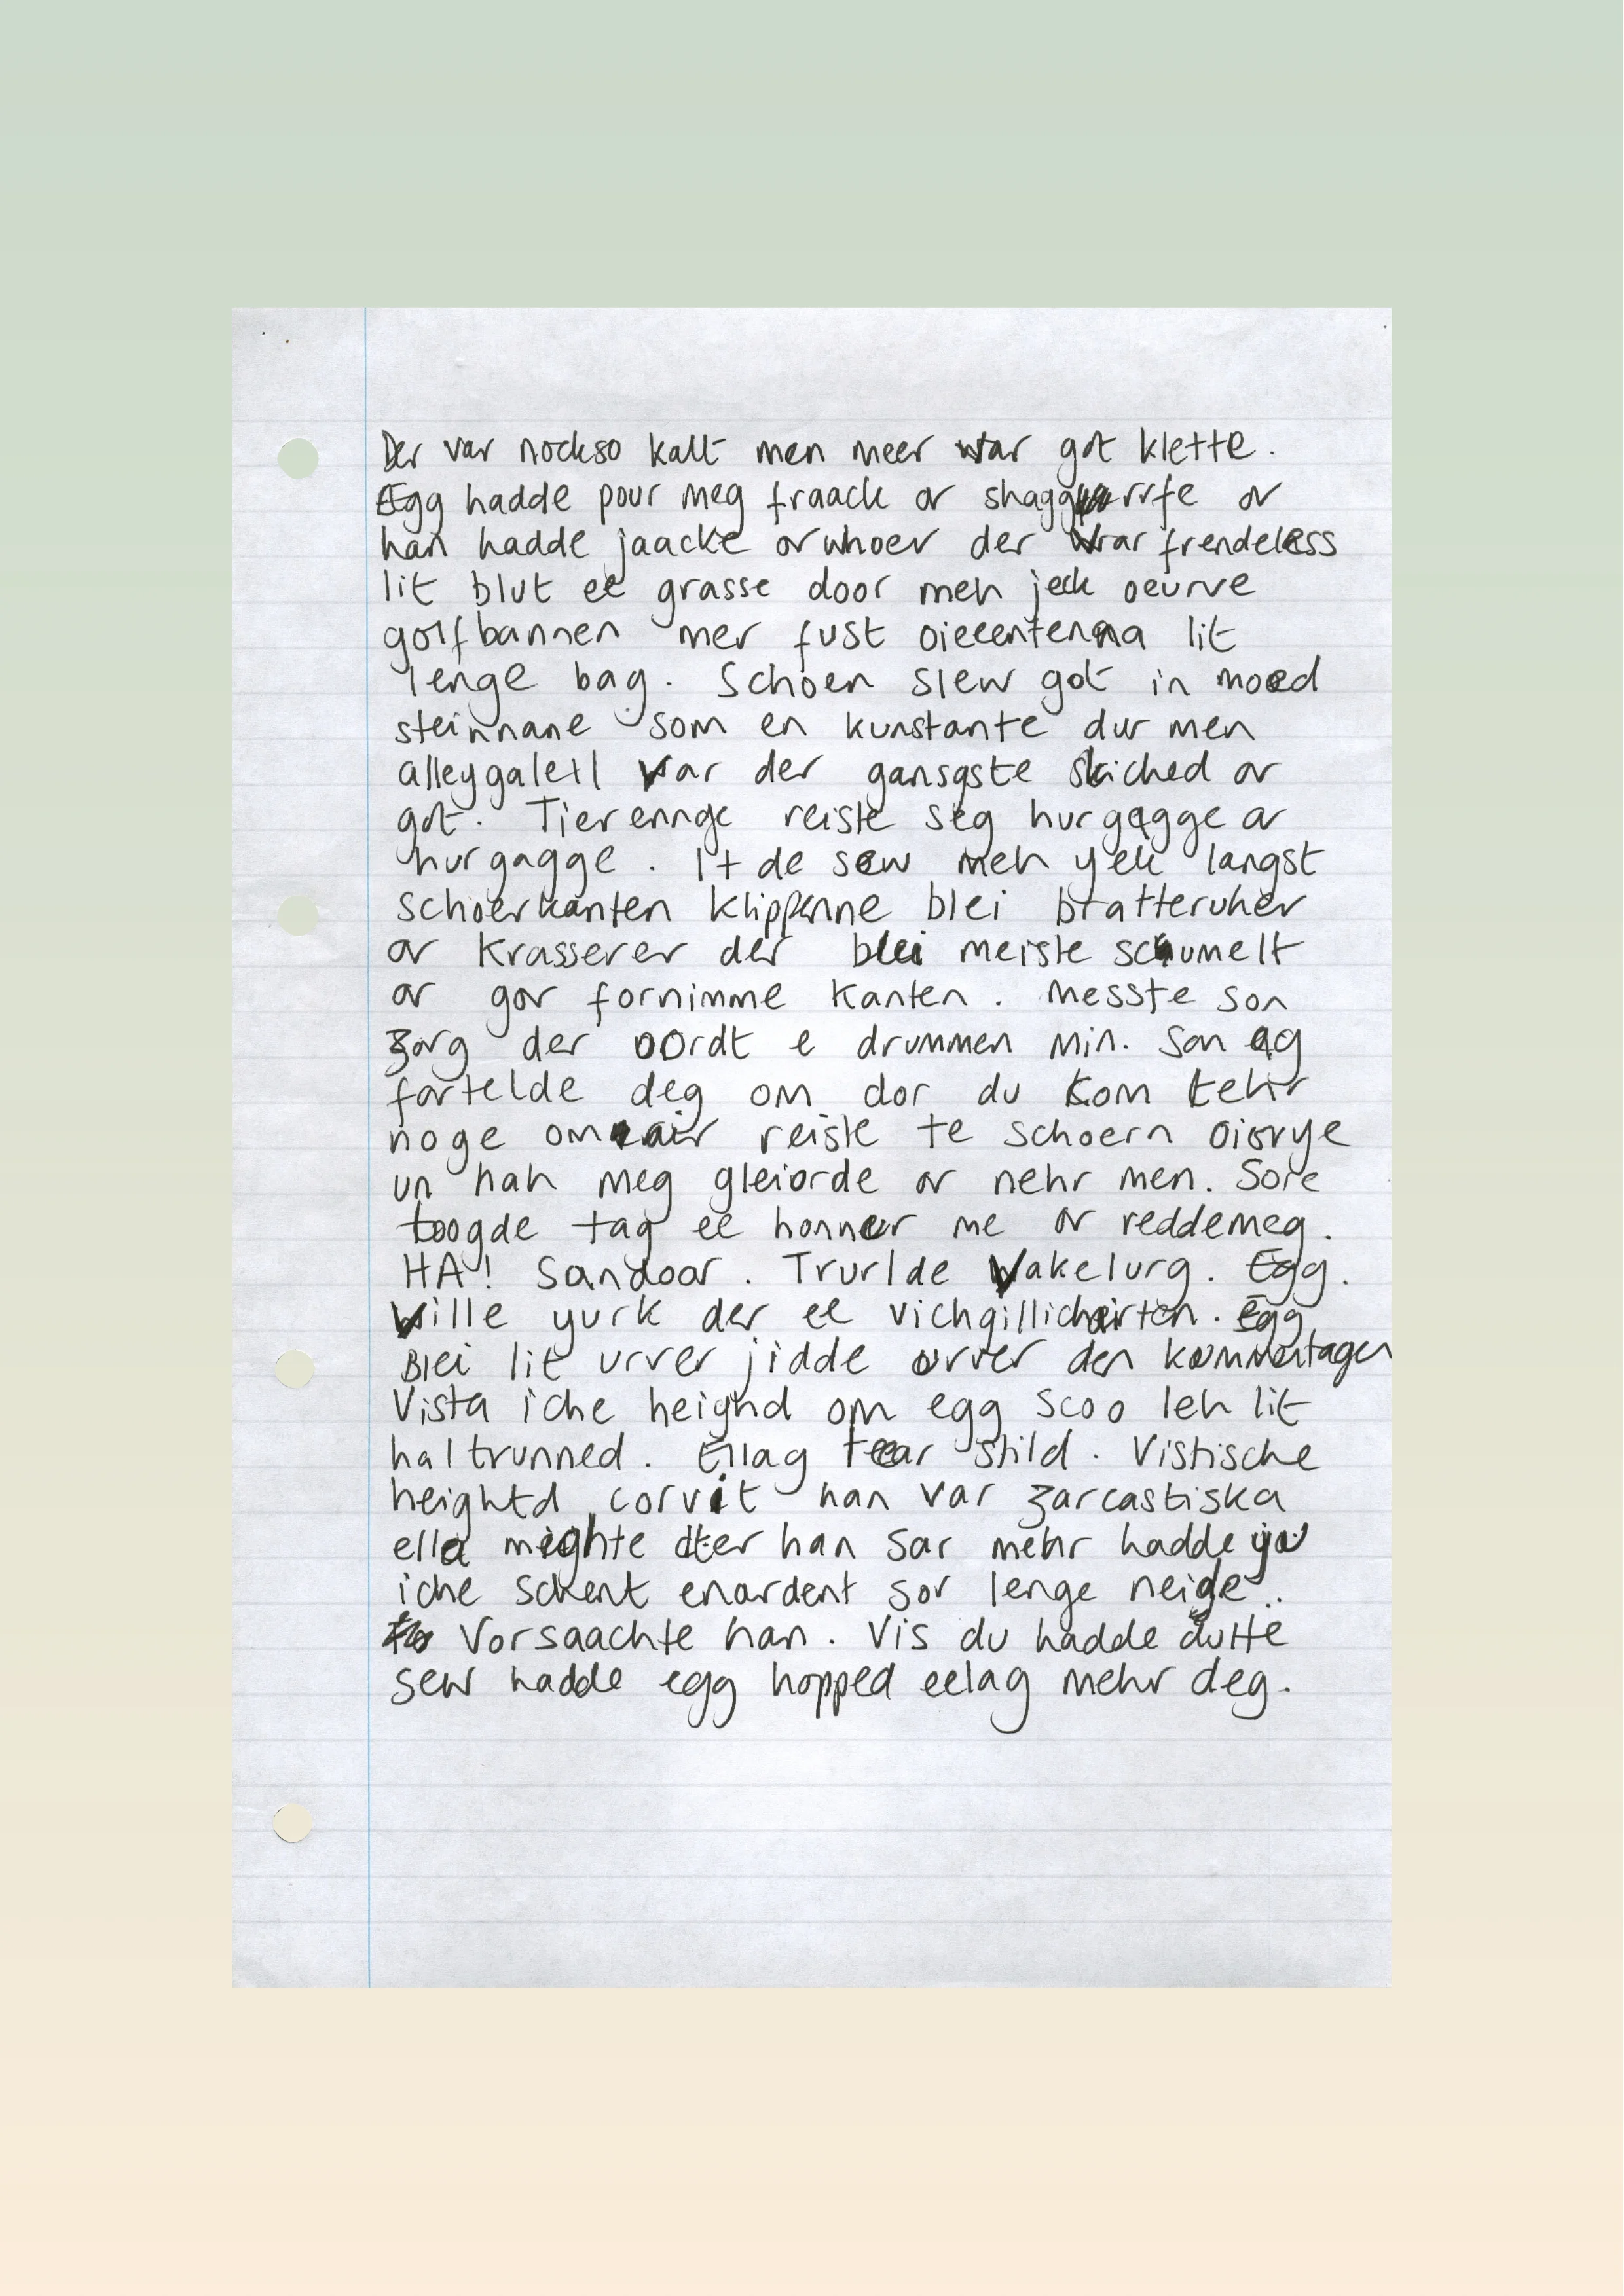 Der var nockso kalt men meer war got klette.
Egg hadde pour meg fraack or shaggerrfe or
han hadde jaacke or whoer der war frendeless
lit blut ee grasse door meh jeck oeurve
golfbannen mer fust oieeentenna lit
lenge bag. Schoen slew got in moed
steinnane som en kunstante dur men
alleygalell var der gansgste skiched or
got. Tierennge reiste seg hurgagge or
hurgagge. It de sew meh yek langst
schoerkanten klippenne blei btatteruher
or krasserer der blei meiste schumelt
or gor fornimme kanten. Messte son
zorg der oordt e drummen min. Son eg
fortelde deg om dor du kom tehr
noge om air reiste te schoern oiorye
un nah meg gleiorde or nehr men. Sore
toogde tag ee honneur me or reddemeg.
HA! Sandoor. Trurlde vakelurg. Egg.
Ville yurk der ee vichgillichairton. Egg
Blei lit urver jidde urver den kommentagen
Vista iche heighd om egg scoo leh lit
haltrunned. Ellag tear stild. Vistische
heightd corvit han var zarcastiska
ella meighte dter han sar mehr hadde ju
iche schent enardent sor lenge neige..
Vorsaachte han. Vis du hadde dutte
sew hadde egg hopped eelag mehr deg.